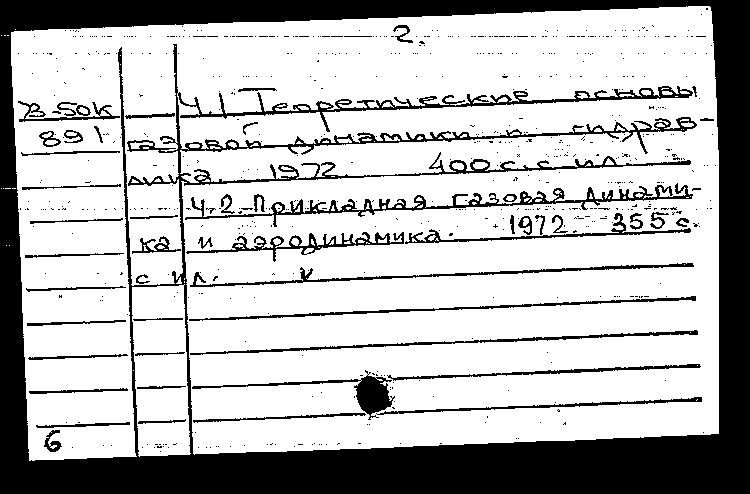 2.
В-50К Ч.1 Теоретические основы
891 газовой динамики и гидрав-
лика. 1972 400 с. с ил.
Ч.2. Прикладная газовая динами-
ка и аэродинамика. 1972. 355 с.
с ил. v
6